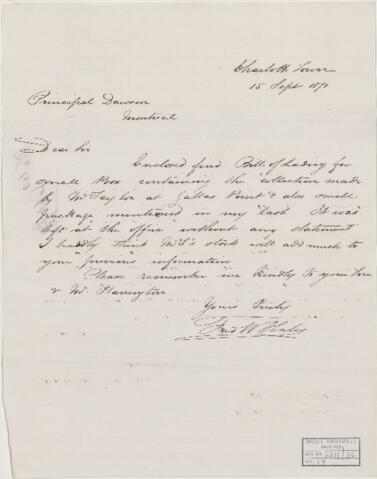 Charlotte Town
15 Sept 1871
Principal Dawson
Montreal
Dear Sir
Enclosed find Bill of Lading for
small Box containing the collection made
by Mr Taylor at Gallas Point & also small
package mentioned in my last It was
left at the office without any statement
I hardly think Mr T's stock will add much to
your previous information
Please remember me kindly to your Son
& Mr Harrington
Yours Truly
Fred W